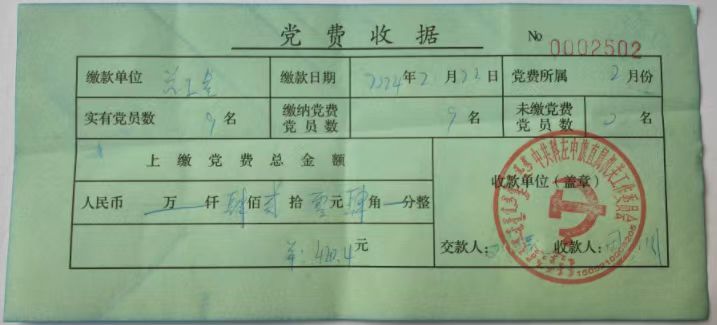 党费收据
No 0002502
缴款单位 缴款日期 2024年2月22日 党费所属 2月份
实有党员数 9名 缴纳党费党员数 9名 未缴党费党员数 名
上缴党费总金额
人民币 万 仟 肆佰 贰拾 零元 肆角 分整
¥: 420.4元
收款单位(盖章)
交款人: 收款人:
中共科左中旗直属机关工作委员会